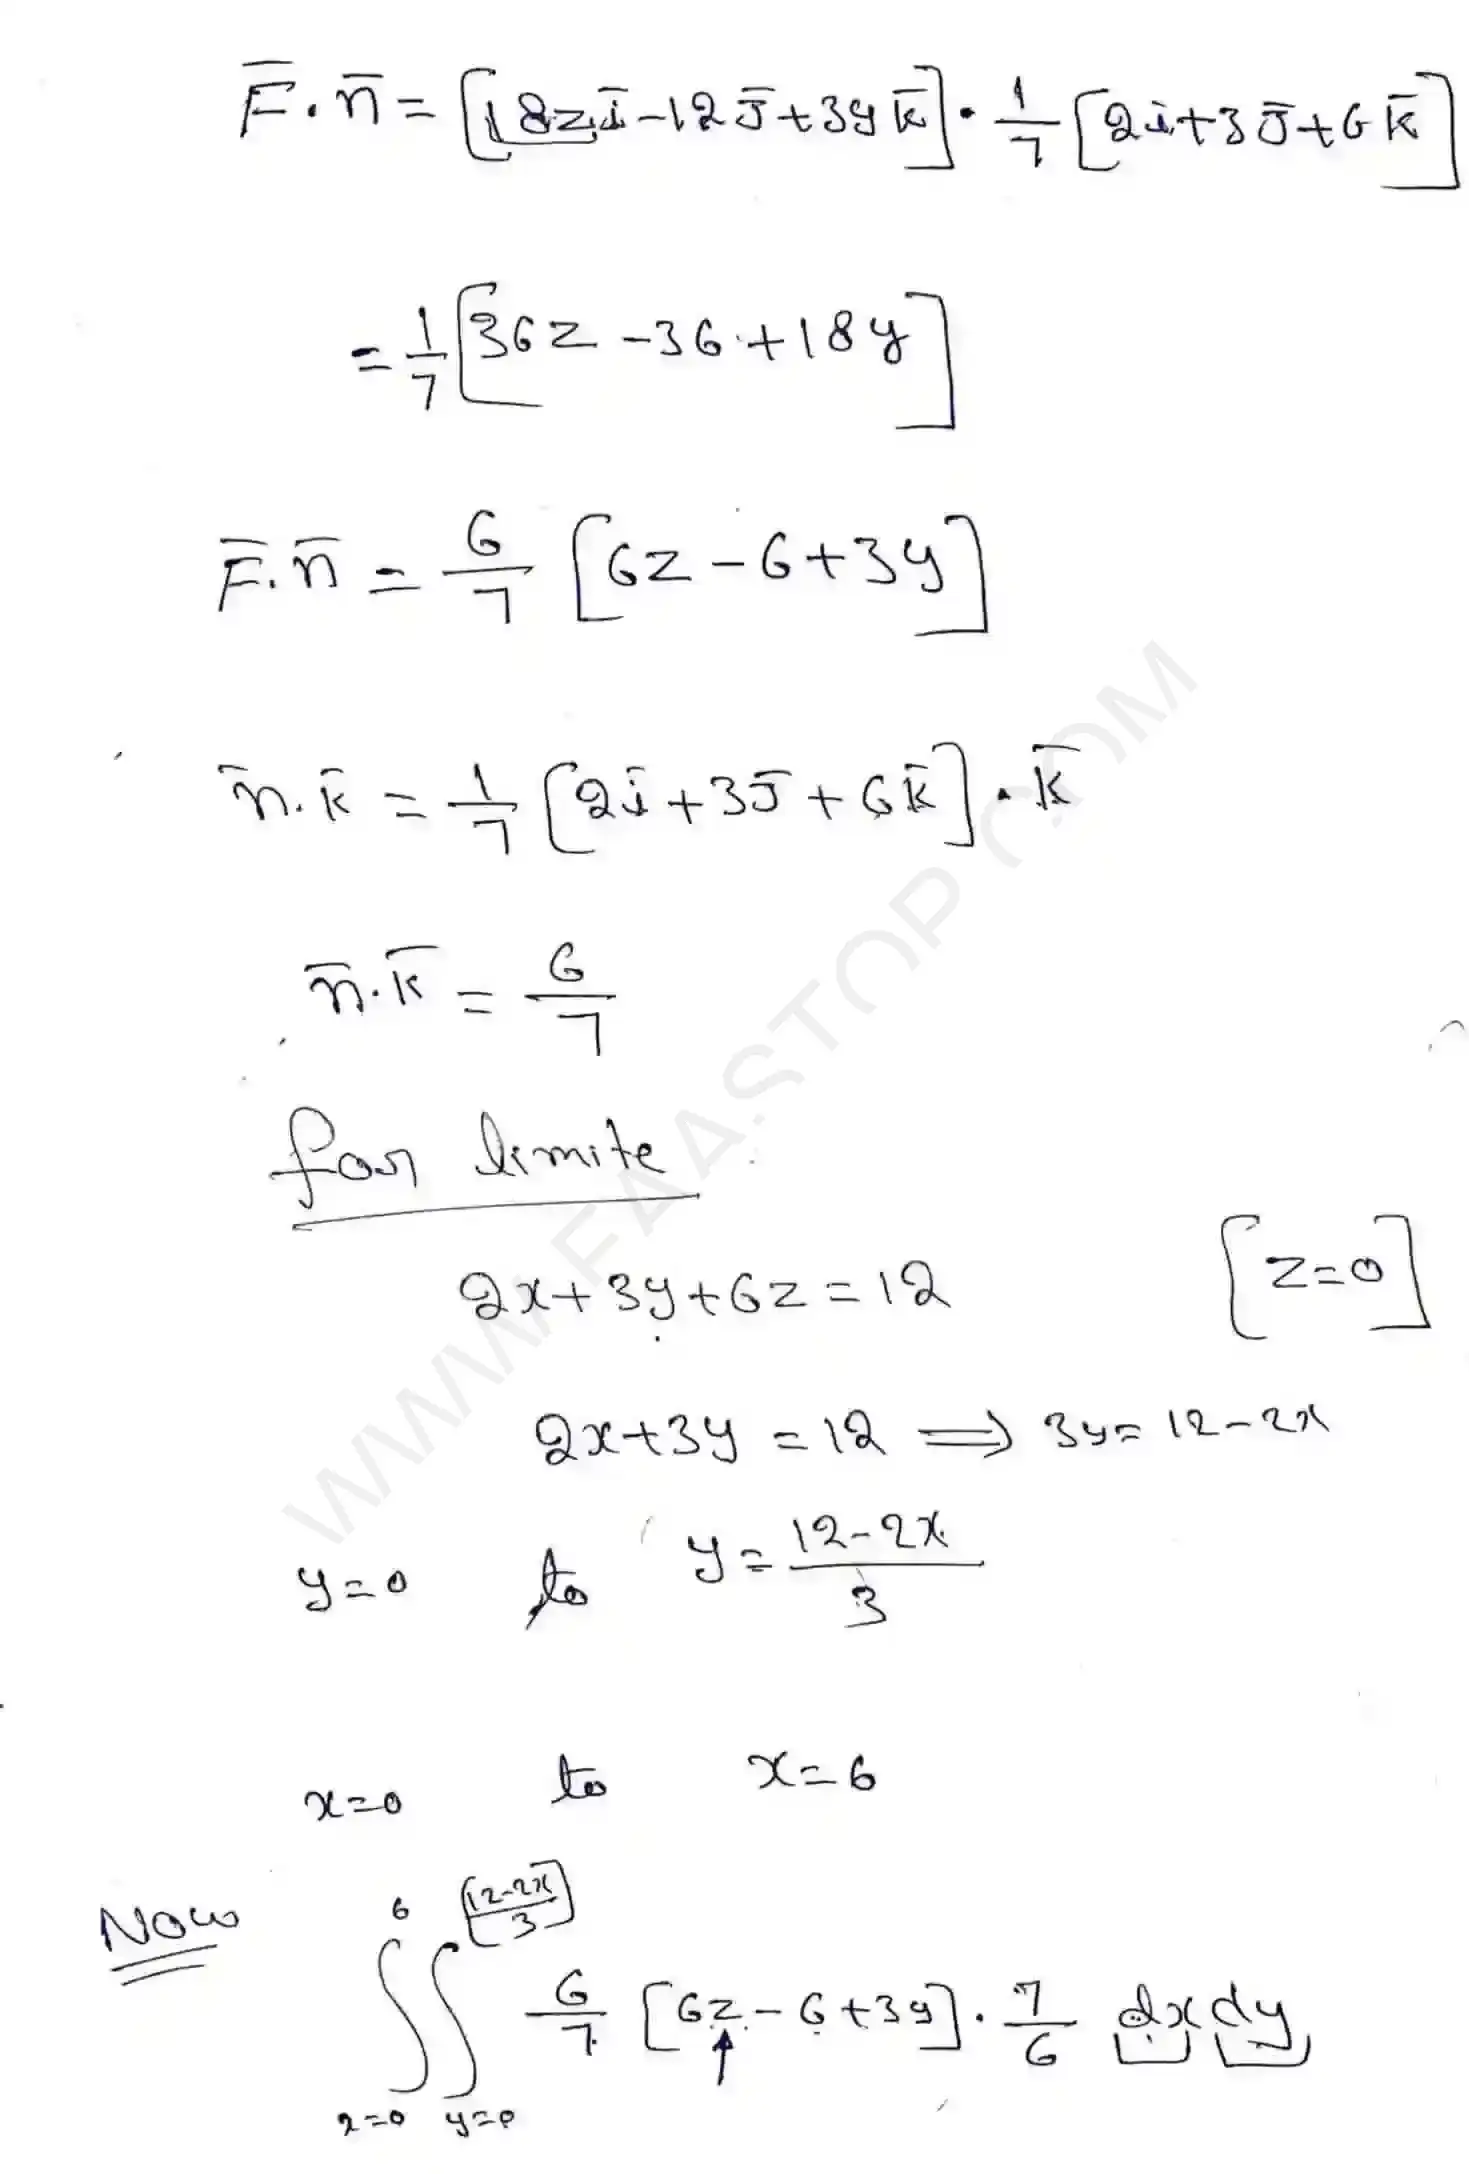 F̅.n̅ = [18zi̅ - 12J̅ + 3yk̅] · 1/7 [2i̅ + 3J̅ + 6k̅]
= 1/7 [36z - 36 + 18y]
F̅.n̅ = 6/7 [6z - 6 + 3y]
n̅.k̅ = 1/7 [2i̅ + 3J̅ + 6k̅] · k̅
n̅.k̅ = 6/7
for limite
2x + 3y + 6z = 12 [z=0]
2x + 3y = 12 ⟹ 3y = 12 - 2x
y=0 to y = (12-2x)/3
x=0 to x=6
Now ∫_{x=0}^{6} ∫_{y=0}^{[(12-2x)/3]} 6/7 [6z - 6 + 3y] · 7/6 dx dy
↑
WWW.FAASTOP.COM